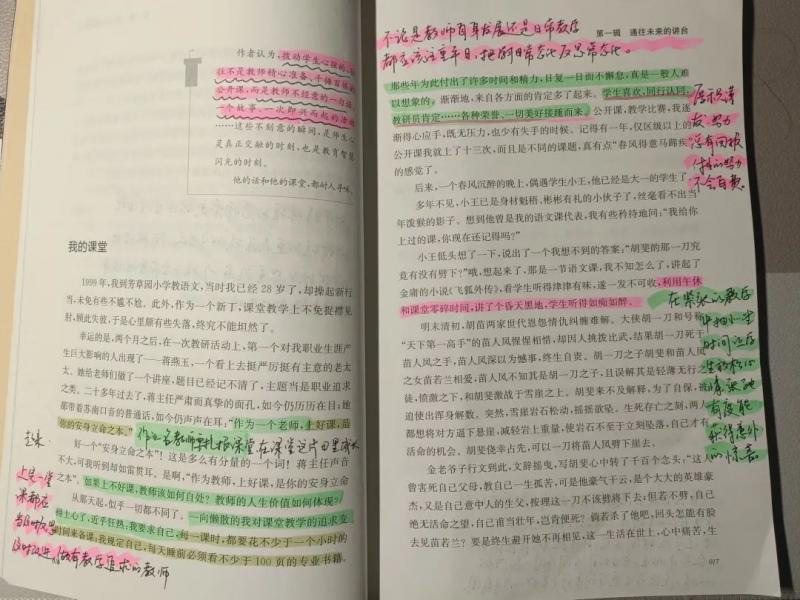 作者认为，拨动学生心弦的，往
往不是教师精心准备、千锤百炼的
公开课，而是教师不经意的一句话、
一个故事、一次即兴而起的活动
……这些不刻意的瞬间，是师生心
灵真正交融的时刻，也是教育智慧
闪光的时刻。
他的话和他的课堂，都耐人寻味。
我的课堂
1999年，我到芳草园小学教语文，当时我已经28岁了，却操起新行
当，未免有些不尴不尬。此外，作为一个新丁，课堂教学上不免捉襟见
肘，顾此失彼，于是心里颇有些失落，终究不能坦然了。
幸运的是，两个月之后，在一次教研活动上，第一个对我职业生涯产
生巨大影响的人出现了——蒋燕玉，一个看上去挺严厉挺有主意的老太
太。她给老师们做了一个讲座，题目已经记不清了，主题当是职业追求
之类。二十多年过去了，蒋主任严肃而真挚的面孔，如今仍历历在目；她
那带着苏南口音的普通话，如今仍声声在耳：“作为一个老师，上好课，是
你的安身立命之本。”
作为老教师要扎根课堂 在课堂这片田里成长
好一个“安身立命之本”！这是多么有分量的一个词！蒋主任声音
不大，可我听到却如雷贯耳。是啊，“作为教师，上好课，是你的安身立命
之本”，如果上不好课，教师该如何自处？教师的人生价值如何体现？
从那天起，似乎一切都不同了。一向懒散的我对课堂教学的追求变
得上心了，近乎狂热，我要求自己，每一课时，都要花不少于一个小时的
时间来备课；我规定自己，每天睡前必须看不少于100页的专业书籍。
上完一堂
课都应
当及时反思
及时改进，做有教学追求的教师
不论是教师自身发展还是日常教学
都应该注重平日，把研日常态化反思常态化。
第一辑 通往未来的讲台
那些年为此付出了许多时间和精力，日复一日而不懈怠，真是一般人难
以想象的。渐渐地，来自各方面的肯定多了起来。学生喜欢，同行认同，
教研员肯定……各种荣誉、一切美好接踵而来。公开课，教学比赛，我逐
渐得心应手，既无压力，也少有失手的时候。记得有一年，仅区级以上的
公开课我就上了十三次，而且是不同的课题，真有点“春风得意马蹄疾”
的感觉了。
努力
没有回报
的努力
不会白费
后来，一个春风沉醉的晚上，偶遇学生小王，他已经是大一的学生了。
多年不见，小王已是身材魁梧、彬彬有礼的小伙子了，丝毫看不出当
年泼猴的影子。想到他曾是我的语文课代表，我有些矜持地问：“我给你
上过的课，你现在还记得吗？”
小王低头想了一下，说出了一个我想不到的答案：“胡斐的那一刀究
竟有没有劈下？”哦，想起来了，那是一节语文课，我不知怎么了，讲起了
金庸的小说《飞狐外传》，看学生听得津津有味，遂一发不可收，利用午休
和课堂零碎时间，讲了个昏天黑地，学生听得如痴如醉。
明末清初，胡苗两家世代恩怨情仇纠缠难解。大侠胡一刀和号称
“天下第一高手”的苗人凤惺惺相惜，却因人挑拨比武，结果胡一刀死于
苗人凤之手，苗人凤深以为憾事，终生自责。胡一刀之子胡斐和苗人凤
之女苗若兰相爱，苗人凤不知其是胡一刀之子，且误解其是轻薄无行之
徒，愤激之下，和胡斐激战于雪崖之上。胡斐来不及解释，为了自保，被
迫使出浑身解数。突然，雪崖岩石松动，摇摇欲坠。生死存亡之刻，两人
都想将对方逼下悬崖，减轻岩上重量，使岩石不至于立刻坠落，自己才有
活命的机会。胡斐侥幸占先，可以一刀将苗人凤劈下崖去。
在紧张的教学
中抽小一些
时间让学
生放松心
情
有可能
获得意外
的惊喜
金老爷子行文到此，文辞摇曳，写胡斐心中转了千百个念头：“这人
曾害死自己父母，教自己一生孤苦，可是他豪气干云，是个大大的英雄豪
杰，又是自己意中人的生父，按理这一刀不该劈将下去；但若不劈，自己
绝无活命之望，自己甫当壮年，岂肯便死？倘若杀了他吧，回头怎能有脸
去见苗若兰？要是终生避开她不再相见，这一生活在世上，心中痛苦，生
017